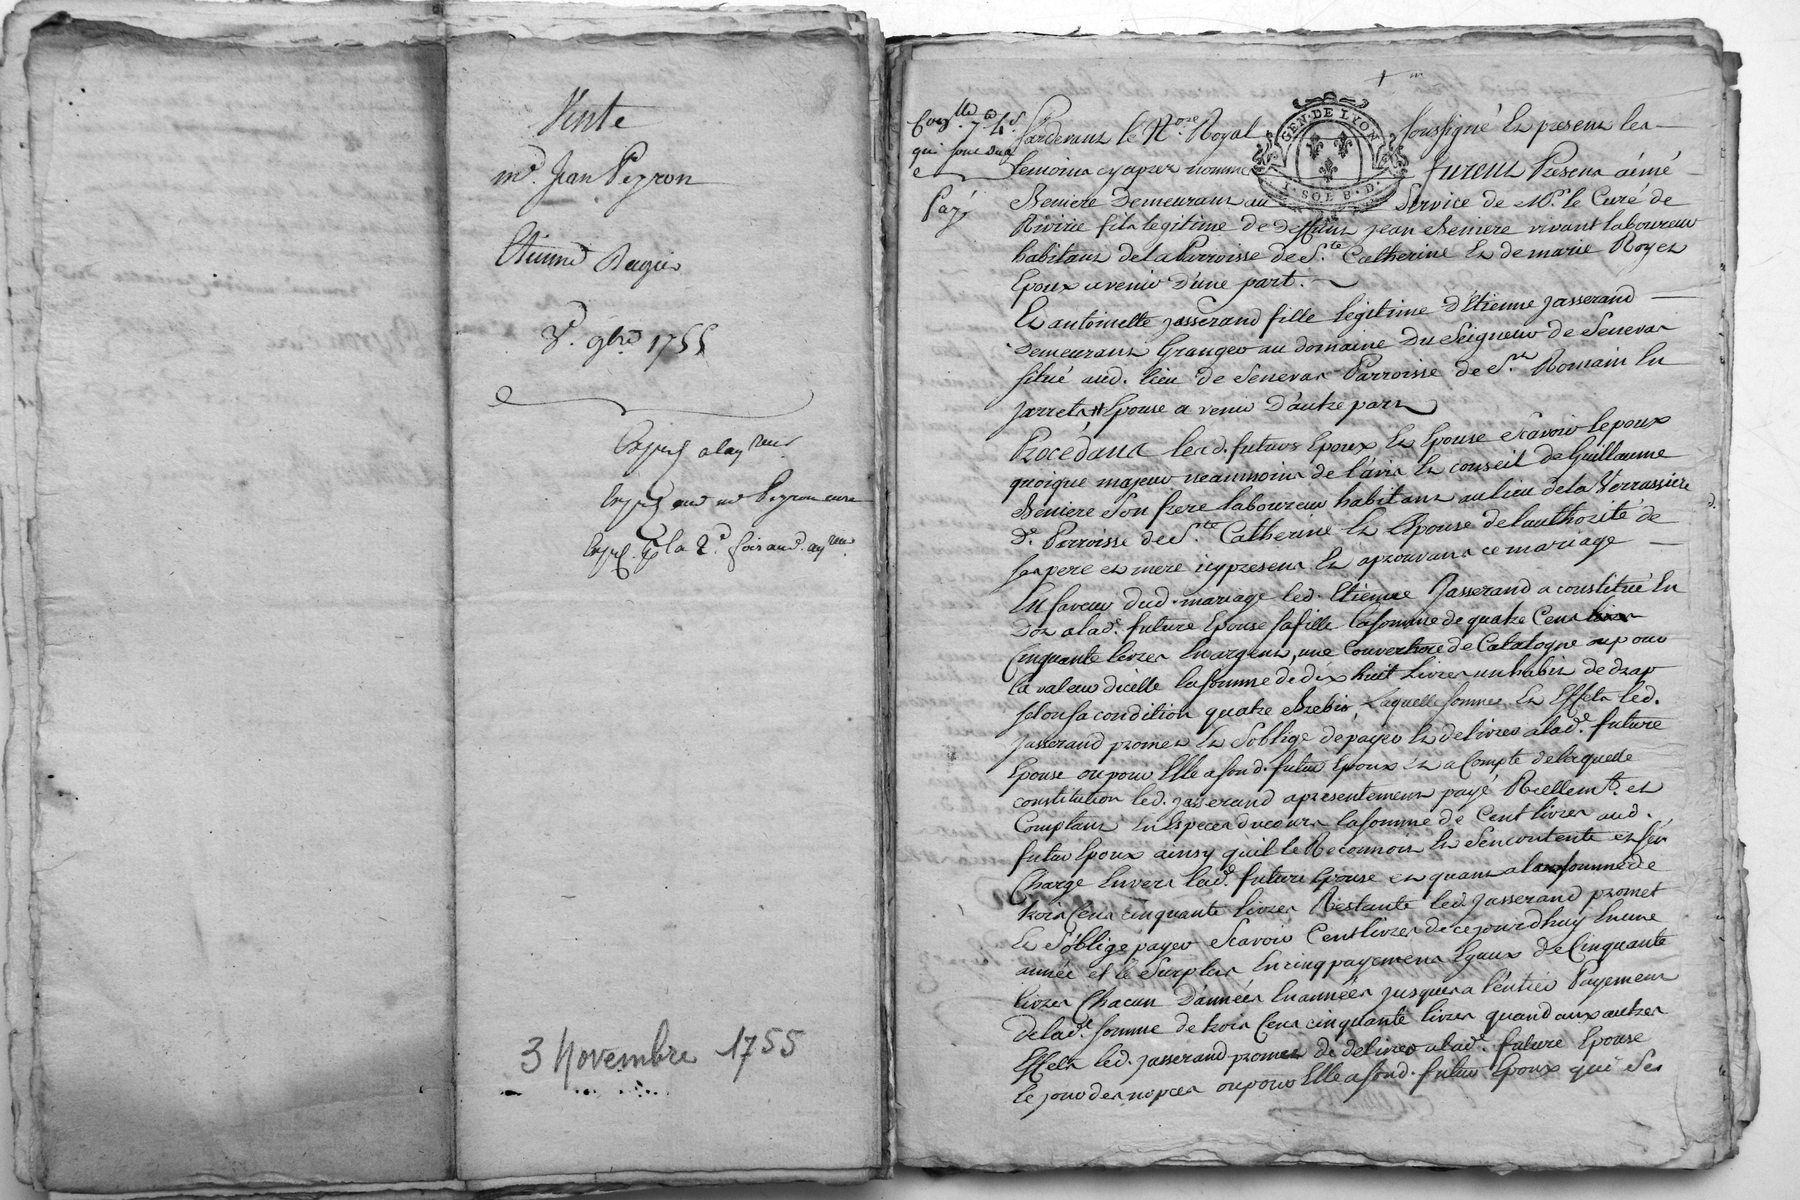 Vente
mr. Jean Peyron
Etienne
3e. 9bre 1755
Expd. a
Expd. aud. mr Peyron
Exped. la 2e. fois aud.
3 Novembre 1755
GEN. DE LYON
1. SOL 8. D.
qui sont deux
Payé
Pardevant le Nore. Royal soussigné Et presens les
temoins cy apres nommés furent Presens aimé
Beniere Demeurant au Service de Mr. le Curé de
Rivirie fils legitime de deffunt jean Beniere vivant laboureur
habitant de la Parroisse de Ste. Catherine Et de marie Royer
Epoux avenir d'une part.
Et antoinette jasserand fille legitime d'Etienne jasserand
Demeurant Granger au domaine du Seigneur de Senevas
situé aud. lieu de Senevas Parroisse de St. Romain En
jarrets Epouse a venir d'autre part
Procédans lesd. futurs Epoux Et Epouse scavoir lepoux
quoique majeur neanmoins de l'avis Et conseil de Guillaume
Beniere son frere laboureur habitant au lieu de la Verrassiere
de. Parroisse de Ste. Catherine Et l'Epouse de l'authorité de
ses pere et mere icy presens Et aprouvans ce mariage
En faveur dud. mariage led. Etienne Jasserand a constitué En
dot a lade. future Epouse sa fille la somme de quatre Cens
Cinquante livres En argent, une Couverture de Catalogne ou pour
la valeur dicelle la somme de dix huit livres un habit de drap
selon sa condition quatre Brebis, Laquelle somme Et Effets led.
jasserand promet Et s'oblige de payer Et delivrer a lade. future
Epouse ou pour Elle a sond. futur Epoux Et a Compte de laquelle
constitution led. jasserand a presentement payé Reellemt. et
Comptant En Especes du cours la somme de Cent livres aud.
futur Epoux ainsy qu'il le Reconnois Et s'en contente et s'en
Charge Envers lade. future Epouse et quant a la somme de
trois Cens cinquante livres Restante led. Jasserand promet
Et s'oblige payer Scavoir Cent livres de ce jourdhuy En une
année et le surplus En cinq payemens Egaux de Cinquante
livres Chacun d'années En années jusques a l'entier Payement
de lade. somme de trois Cens cinquante livres quand aux autres
Effets led. Jasserand promet de delivrer a lade. future Epouse
le jour des nopces ou pour Elle a sond. futur Epoux qui Ses